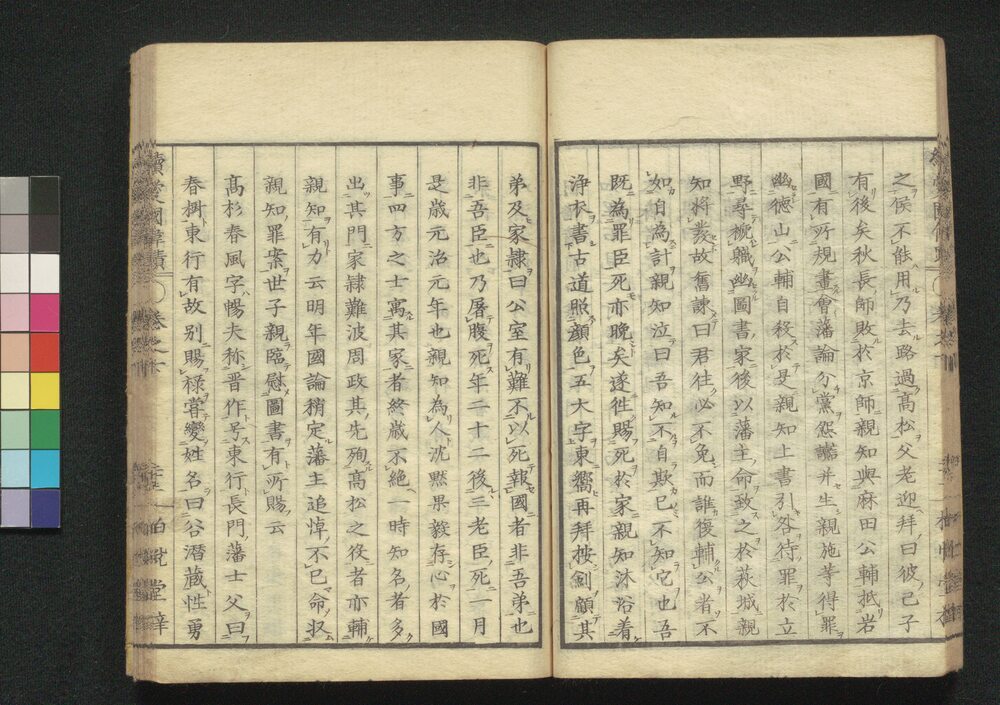 之侯不能用乃去路過高松父老迎拜曰彼己子
有後矣秋長師敗於京師親知與麻田公輔抵岩
國有所規畫會藩論分黨怨讟并生親施等得罪
幽德山公輔自殺於是親知上書引咎待罪於立
野尋褫職幽圖書家後以藩主命致之於萩城親
知將發故舊諫曰君往必不免而誰復輔公者不
如自為計親知泣曰吾知不自欺已不知它也吾
既為罪臣死亦晚矣遂徃賜死於家親知沐浴着
淨衣書古道照顏色五大字東嚮再拜按劍顧其
弟及家隷曰公室有難不以死報國者非吾弟也
非吾臣也乃屠腹死年二十二後三老臣死一月
是歲元治元年也親知為人沈默果毅存心於國
事四方之士寓其家者終歲不絕一時知名者多
出其門家隷難波周政其先殉高松之役者亦輔
親知有力云明年國論稍定藩主追悼不已命収
親知罪案世子親臨慰圖書有所賜云
高杉春風字暢夫称晋作号東行長門藩士父曰
春樹東行有故別賜祿嘗變姓名曰谷潜藏性勇
續愛國偉績 卷之十